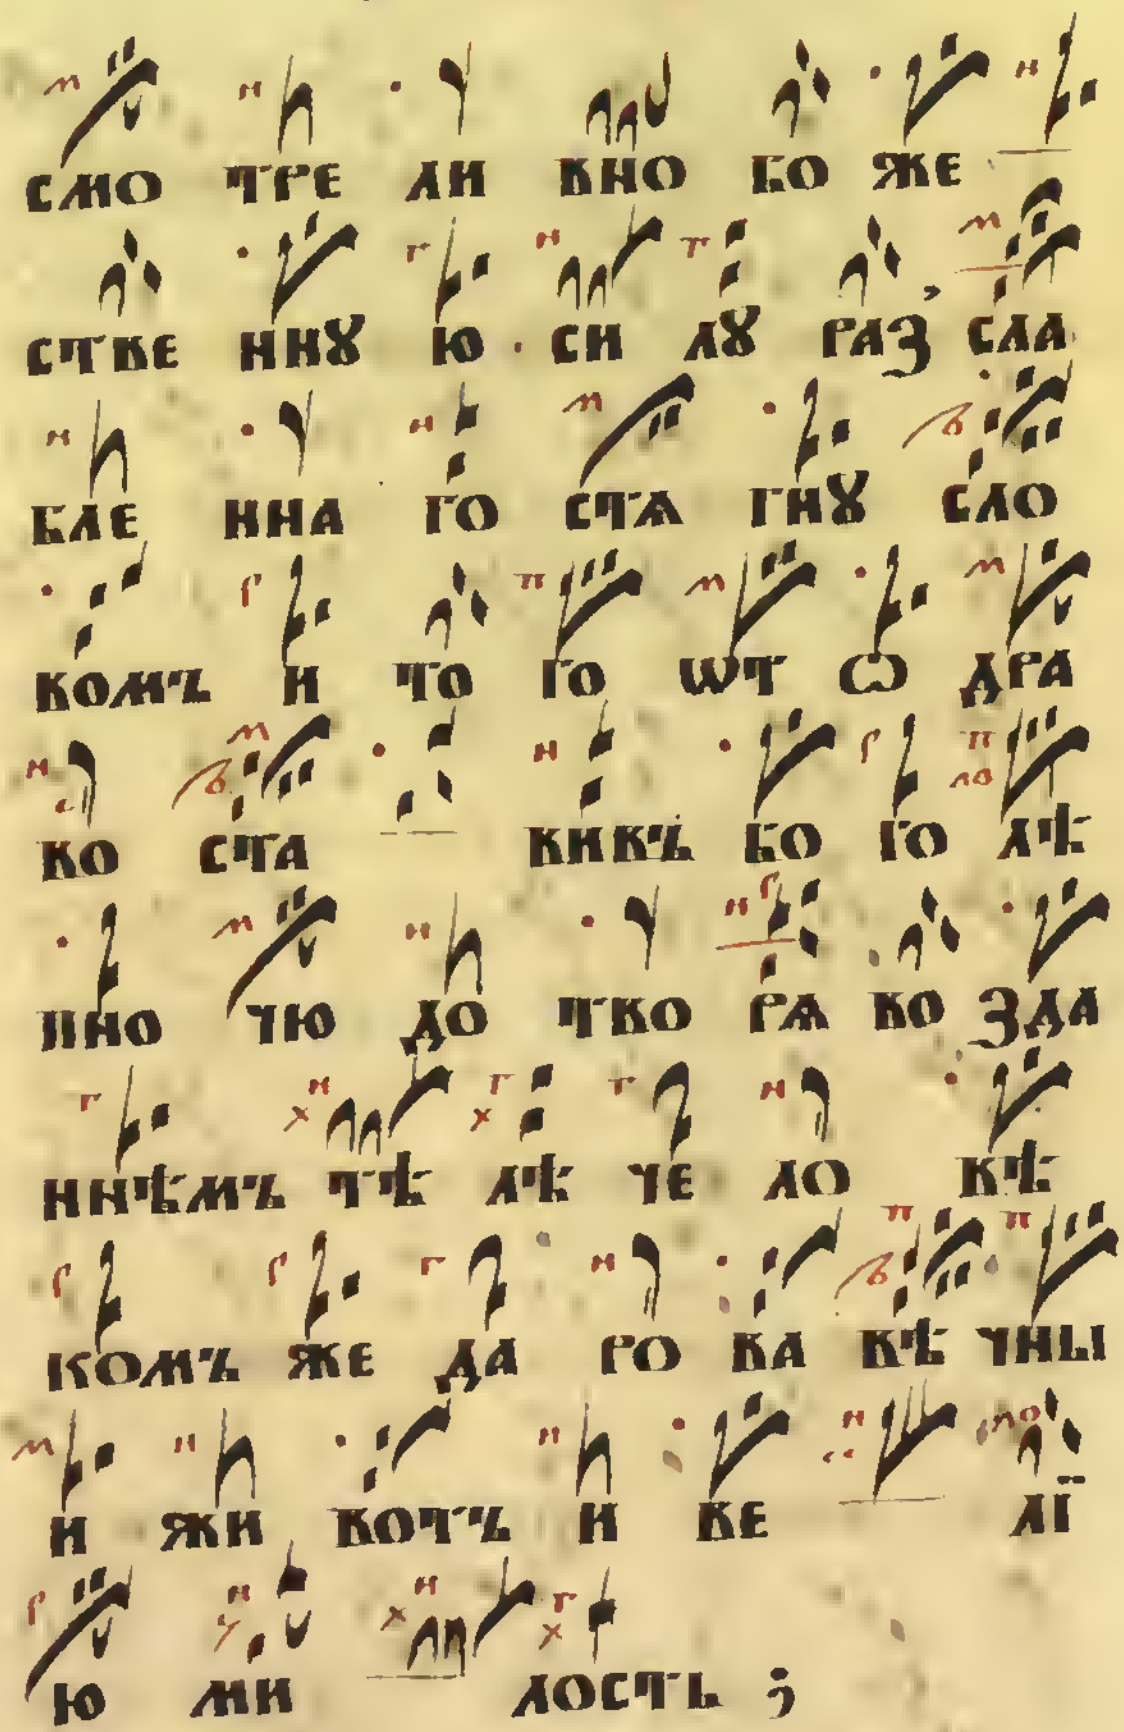 смо тре ли вно бо же
стве ннꙋ ю . си лꙋ раз̾ сла
бле нна го стѧ гнꙋ сло
вомъ и то го ѿт ѡ дра
во ста викъ бо го лѣ
пно чю до тво рѧ во зда
ннѣмъ тѣ лѣ че ло вѣ
комъ же да ро ва вѣ чны
и жи вотъ и ве лї
ю ми лость ;